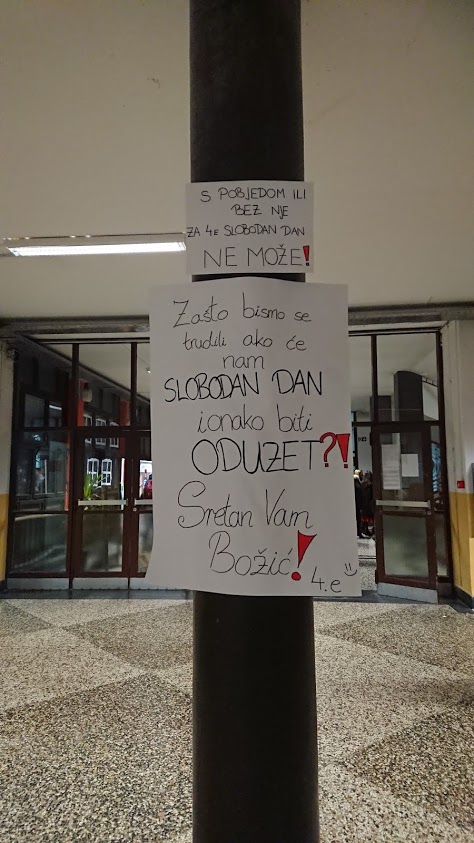 S POBJEDOM ILI
BEZ NJE
ZA 4e SLOBODAN DAN
NE MOŽE!
Zašto bismo se
trudili ako će
nam
SLOBODAN DAN
ionako biti
ODUZET?!
Sretan Vam
Božić!
4.e